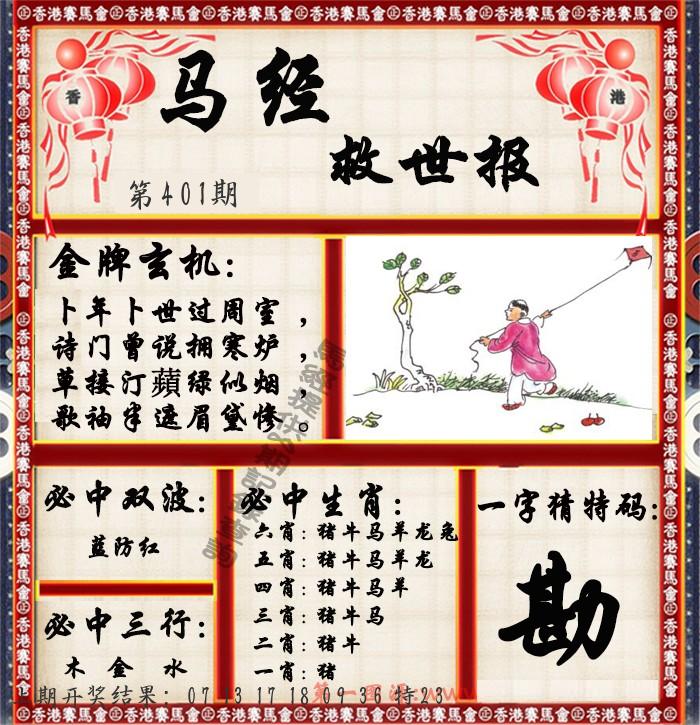 马经
救世报
第401期
香
港
金牌玄机：
卜年卜世过周室，
诗门曾说拥寒炉，
草接汀蘋绿似烟，
歌袖半遮眉黛惨。
必中双波：
蓝防红
必中三行：
木 金 水
必中生肖：
六肖：猪牛马羊龙兔
五肖：猪牛马羊龙
四肖：猪牛马羊
三肖：猪牛马
二肖：猪牛
一肖：猪
一字猜特码：
勘
期开奖结果：07 13 17 18 09 36 特23
香港賽馬會